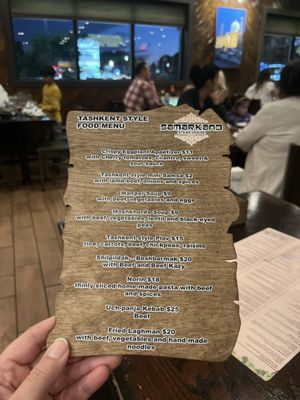 TASHKENT STYLE
FOOD MENU
SAMARKAND
STEAK HOUSE
Crispy Eggplant Appetizer $11
with Cherry tomatoes, cilantro, sweet &
sour sauce
Tashkent style mini Samsa $2
with lamb, beef, onions and spices
Mampar Soup $9
with beef, vegetables and eggs
Moshkhorda Soup $9
with beef, vegetables, lentil and black-eyed
peas
Tashkent style Plov $15
rice, carrots, beef, chickpeas, raisins
Shilpildak - Beshbarmak $20
with Beef and Beef Kazy
Norin $18
thinly sliced home-made pasta with beef
and spices
Uch-panja Kebab $25
Beef
Fried Laghman $20
with beef, vegetables and hand-made
noodles